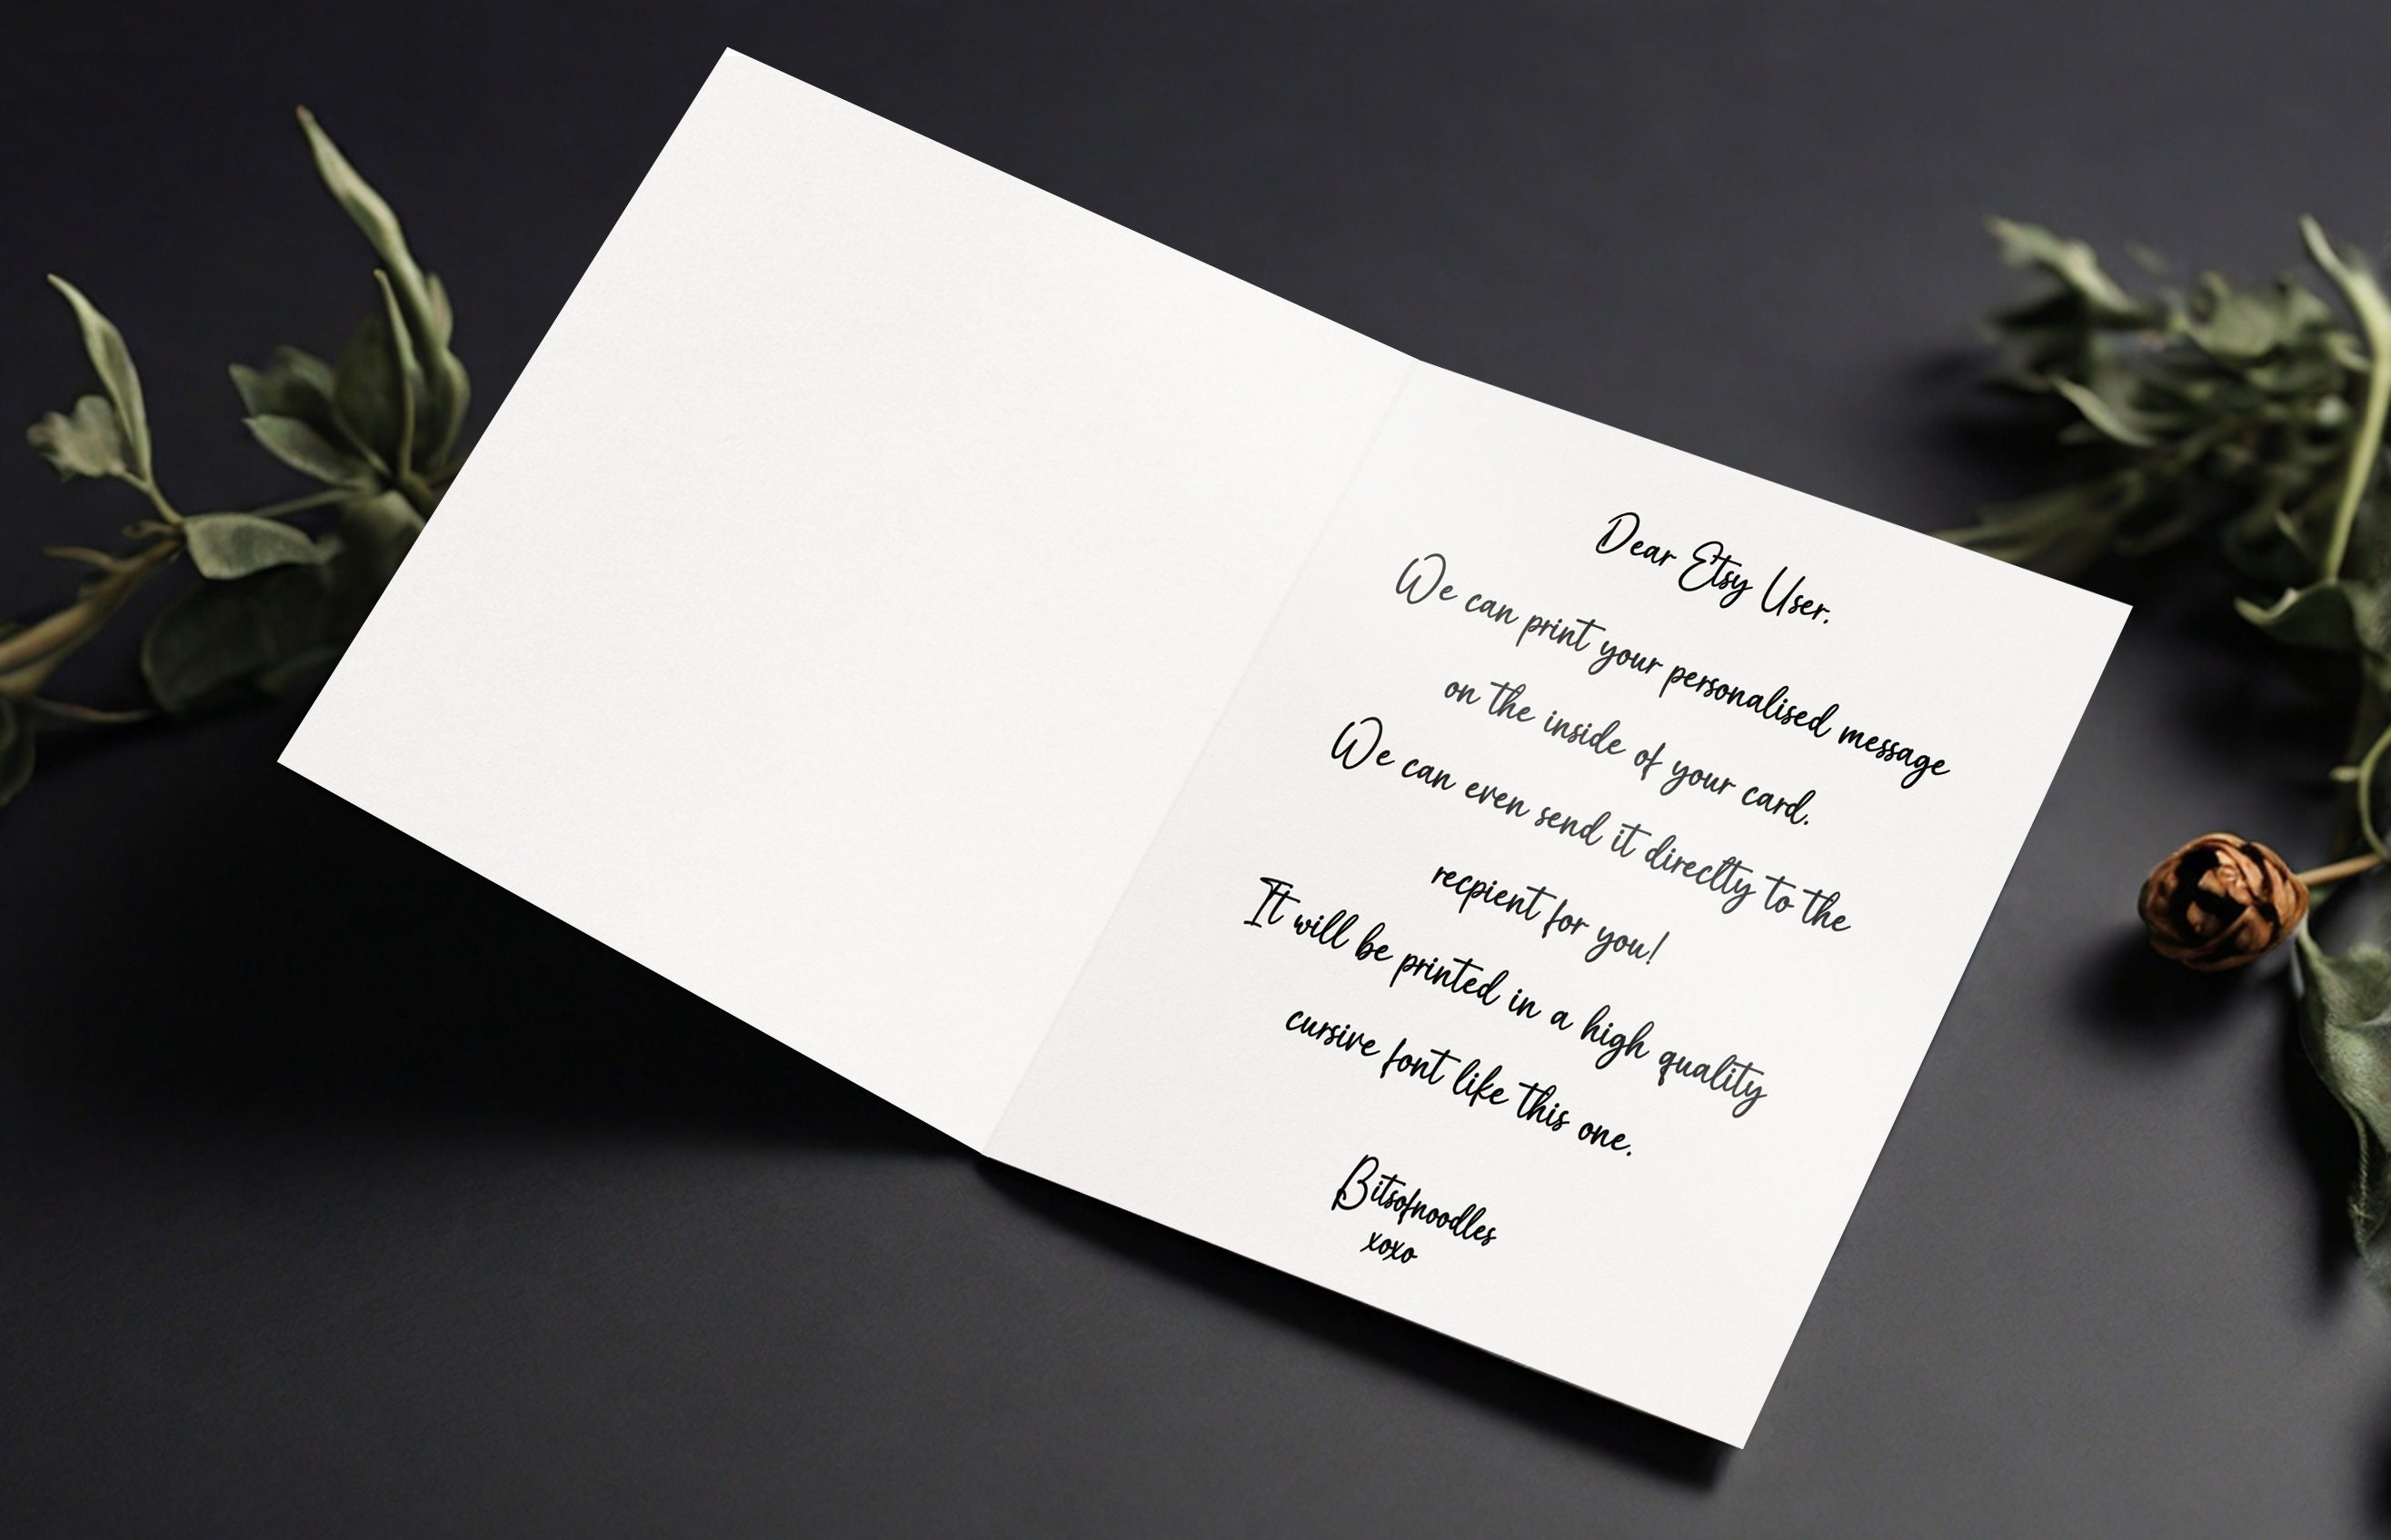 Dear Etsy User,
We can print your personalised message
on the inside of your card.
We can even send it direclty to the
recpient for you!
It will be printed in a high quality
cursive font like this one.
Bitsofnoodles
xoxo